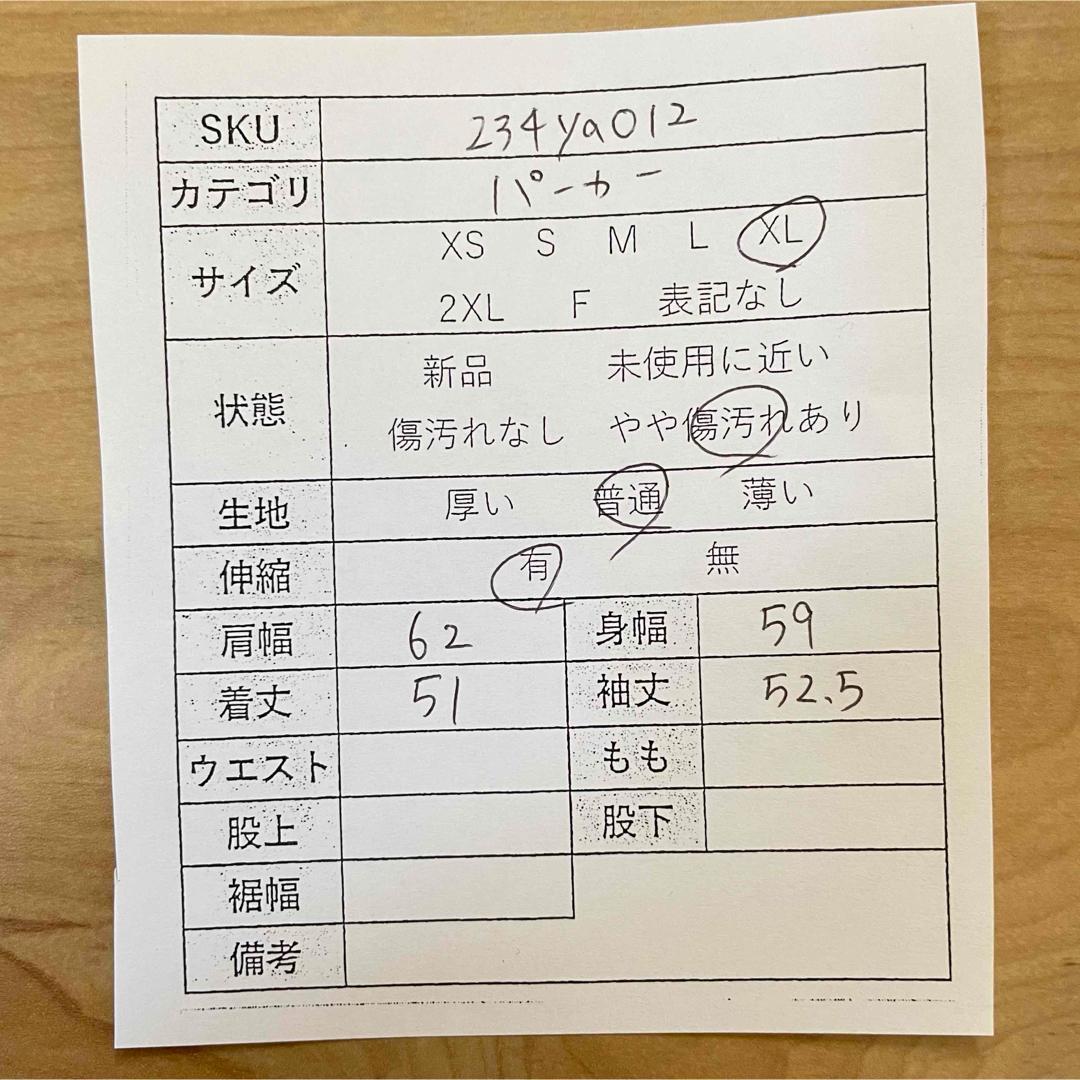 SKU 234ya012
カテゴリ パーカー
サイズ XS S M L XL
2XL F 表記なし
状態 新品 未使用に近い
傷汚れなし やや傷汚れあり
生地 厚い 普通 薄い
伸縮 有 無
肩幅 62 身幅 59
着丈 51 袖丈 52.5
ウエスト もも
股上 股下
裾幅
備考